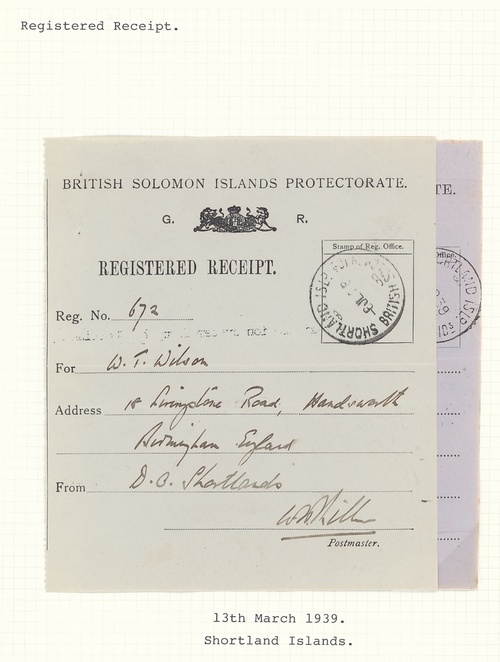 Registered Receipt.
BRITISH SOLOMON ISLANDS PROTECTORATE.
G. R.
Stamp of Reg. Office.
REGISTERED RECEIPT.
SHORTLAND
BRITISH
Reg. No. 672
For W. T. Wilson
Address 18 Livingstone Road, Handsworth
Birmingham England
From D.O. Shortlands
Postmaster.
TE.
13th March 1939.
Shortland Islands.